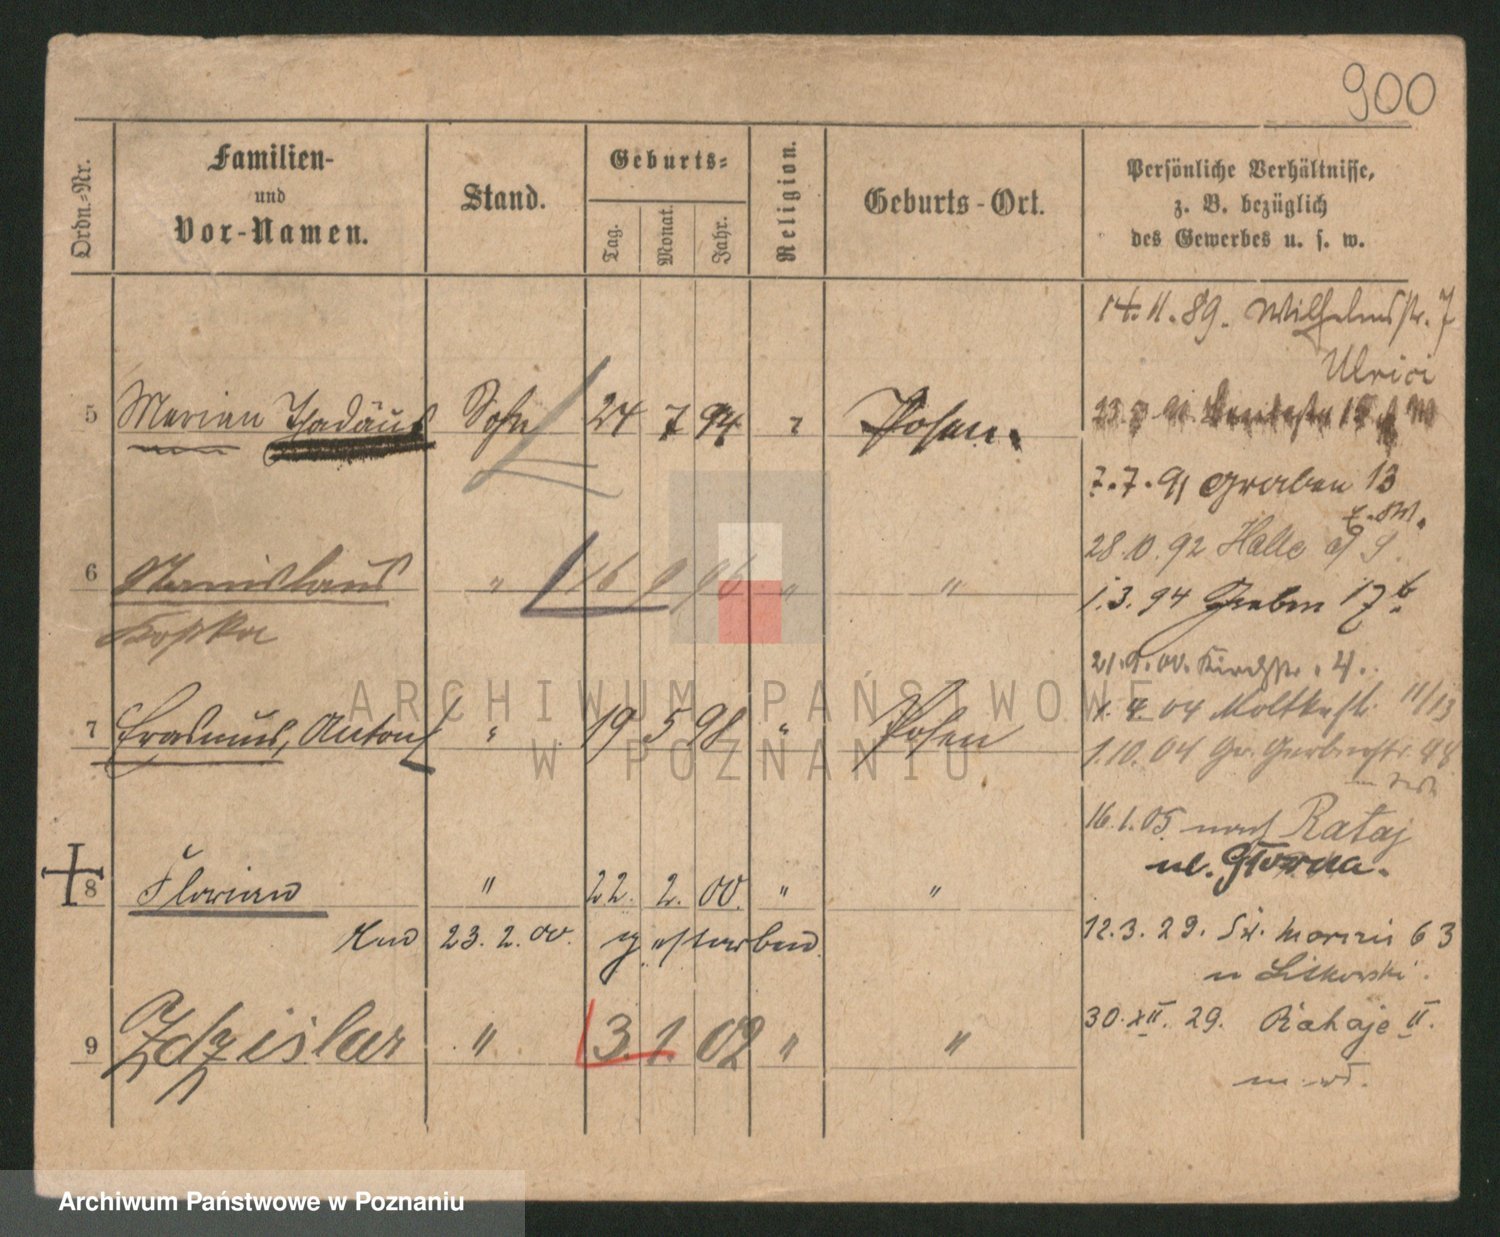 900
Ordn.-Nr.
Familien-
und
Vor-Namen.
Stand.
Geburts-
Tag.
Monat.
Jahr.
Religion.
Geburts-Ort.
Persönliche Verhältnisse,
z. B. bezüglich
des Gewerbes u. s. w.
14.11.89. Wilhelmstr. 7
Ulrici
5 Marian Thadäus Sohn 24 7 94 " Posen.
7.7.91 Graben 13
28.10.92 Halle
6 Stanislaus " 16 9 96 " "
1.3.94 Graben 17b
Kostka
21.9.00. Kirchstr. 4.
1.4.04 Moltkestr. 11/13
7 Erasmus, Anton " 19 5 98 " Posen
1.10.04 Gr. Gerberstr. 48
16.1.05 nach Rataj
ul. Główna.
8 Florian " 22. 2. 00. " "
Am 23.2.00. gestorben
12.3.29. Św. Marcin 63
u Litkowski.
30.XII.29. Rataje II.
9 Zdzislaw " 3. 1. 02 " "
ARCHIWUM PAŃSTWOWE
W POZNANIU
Archiwum Państwowe w Poznaniu